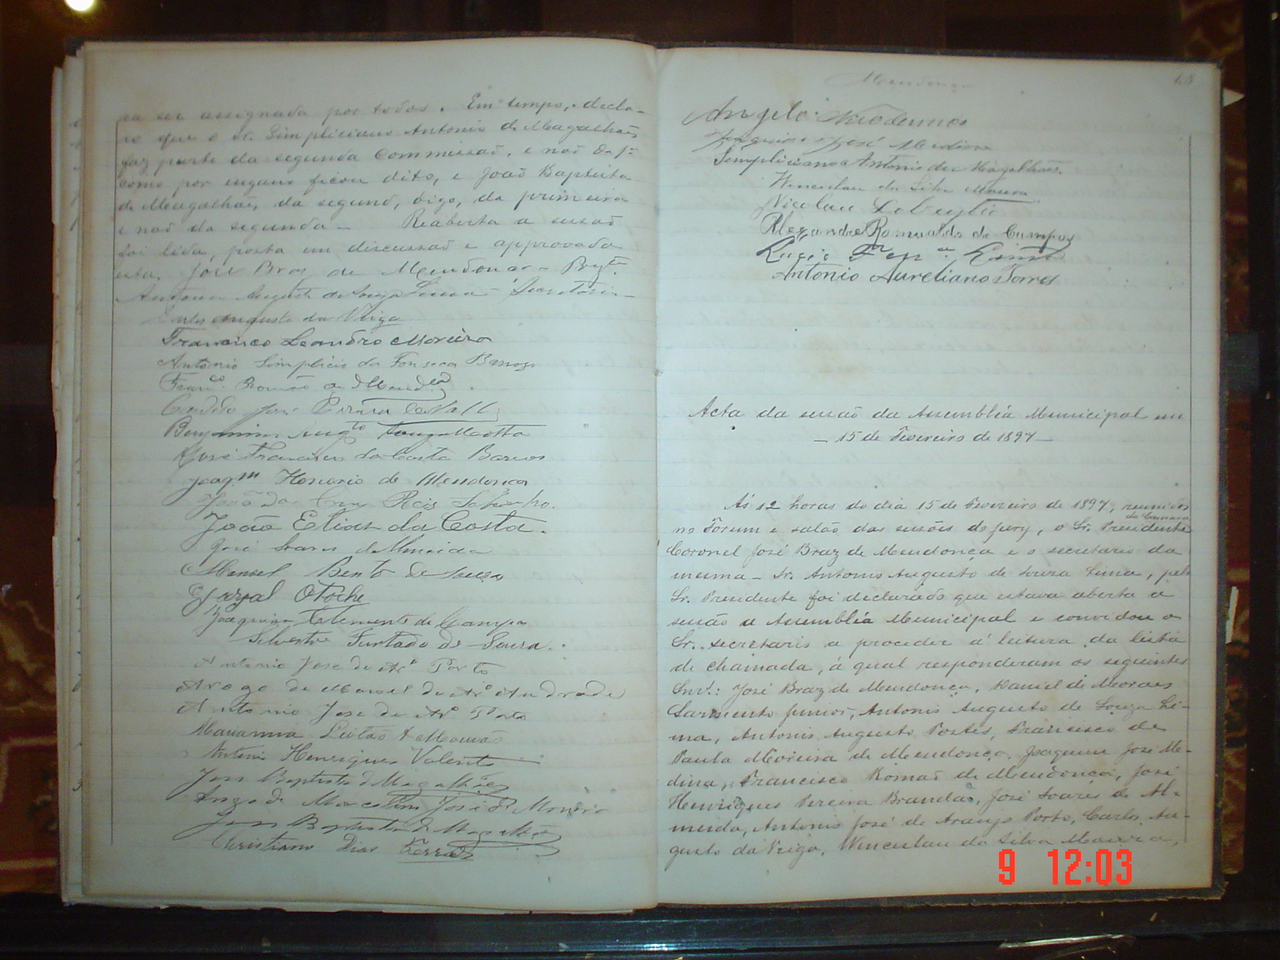 ra ser assignada por todos. Em tempo, decla-
ro que o Sr. Simpliciano Antonio de Magalhães
faz parte da segunda Commissão, e não da 1ª
como por engano ficou dito, e João Baptista
de Magalhães, da segund, digo, da primeira
e não da segunda — Reaberta a sessão
foi lida, posta em discussão e approvada
esta. José Braz de Mendonça - Presᵗᵉ
Antonio Augusto de Souza Lima - Secretario -
Carlos Augusto da Veiga
Francisco Leandro Moreira
Antonio Simplicio da Fonseca Barros
Franᶜᵒ Romão de Mendᶜᵃ
Candido José
Benjamim Augᵗᵒ Souza Motta
José Francisco da Costa Barros
Joaqᵐ Honorio de Mendonca
João da Cruz Reis
João Elias da Costa.
José Soares de Almeida
Manoel Bento de Souza
Joaquim Clemente de Campos
Silvestre Furtado de Souza.
Antonio José de Arº Porto
Arogo de Manoel de Arº Andrade
Antonio José de Arº Porto
Marianna
Antonio Henriques Valente
João Baptista de Magalhães
Arogo de José
João Baptista de Magalhães
Christiano Dias Ferraz
Mendonça
Angelo Nicodemos
Joaquim José Medina
Sempliciano Antonio de Magalhães
Wencislau da Silva Moura
Nicolau
Alexandre Romualdo de Campos
Lucio
Antonio Aureliano Torres
Acta da sessão da Assembléa Municipal em
— 15 de Fevereiro de 1897 —
Ás 12 horas do dia 15 de Fevereiro de 1897, reunidos
no Forum e salão das sessões do jury, o Sr. Presidente da Camara
Coronel José Braz de Mendonça e o secretario da
mesma - Sr. Antonio Augusto de Souza Lima, pelo
Sr. Presidente foi declarado que estava aberta a
sessão a Assembléa Municipal e convidou o
Sr. secretario a proceder á leitura da lista
de chamada, á qual responderam os seguintes
Snrs: José Braz de Mendonça, Daniel de Moraes
Sarmento Junior, Antonio Augusto de Souza Li-
ma, Antonio Augusto Portes, Francisco de
Paula Moreira de Mendonça, Joaquim José Me-
dina, Francisco Romão de Mendonça, José
Henriques Pereira Brandão, José Soares de Al-
meida, Antonio José de Araujo Porto, Carlos Au-
gusto da Veiga, Wenceslau da Silva Moura,
9 12:03